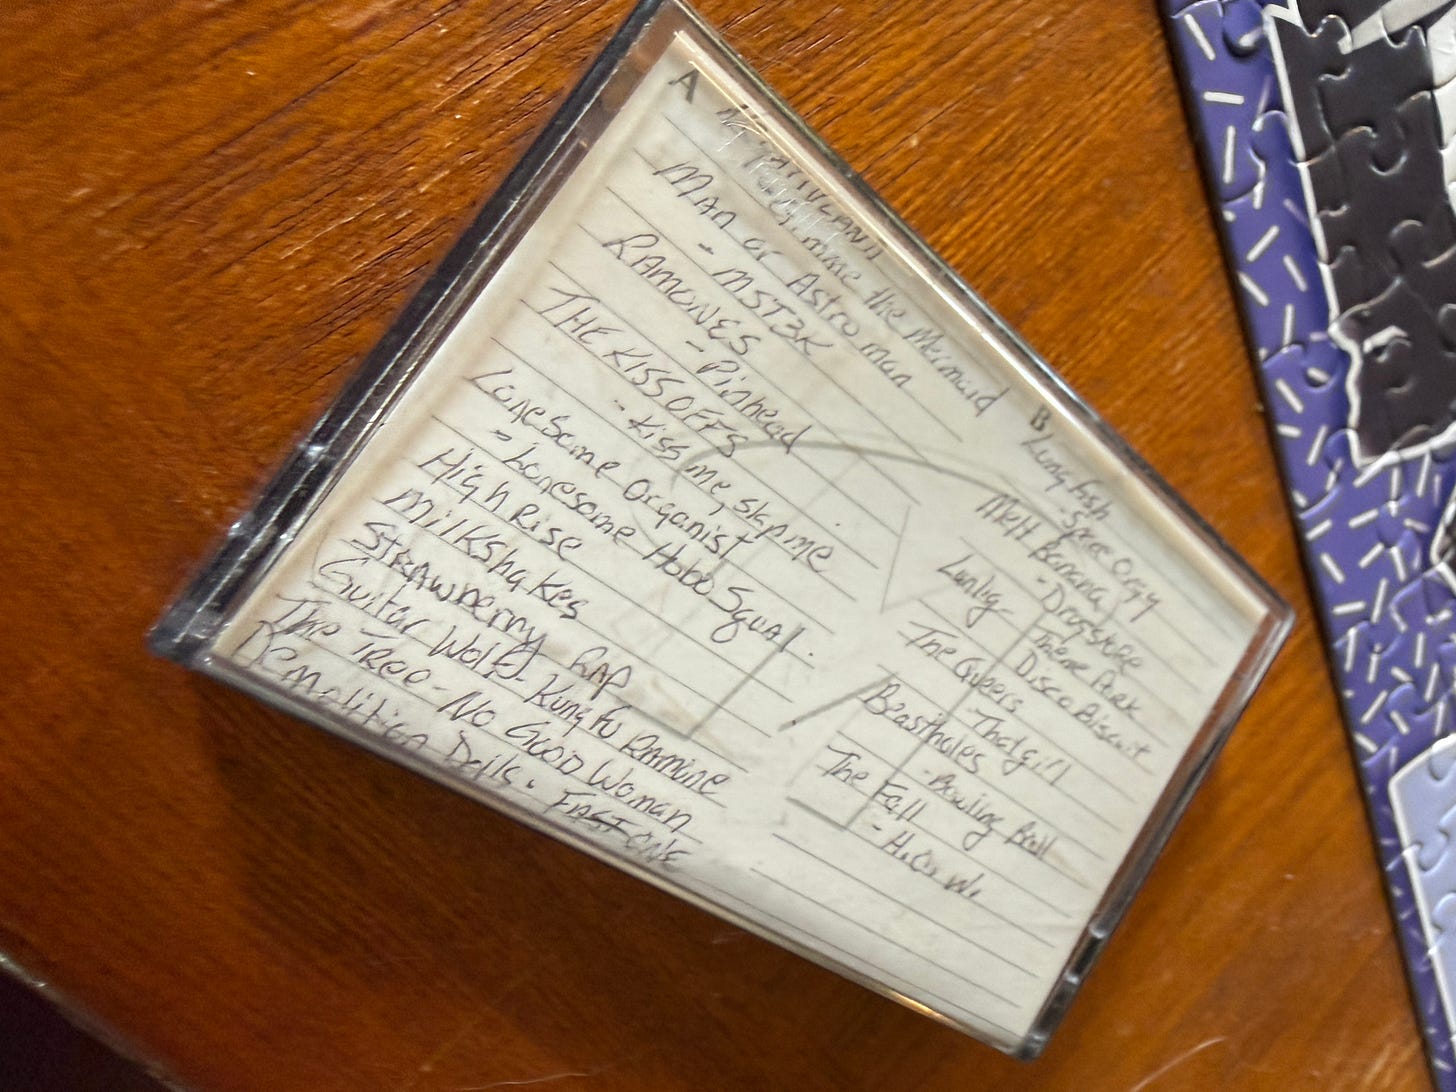 A
the Mermaid
MAN or Astro man
- MST3K
RAMONES
- Pinhead
THE KISSOFFS
- Kiss me, slap me
Lonesome Organist
- Lonesome Hobo Squal.
High Rise
Milkshakes
STRAWberry RAP
Guitar Wolf. Kung Fu Ramone
The Tree - No Good Woman
Demolition Dolls. FAST ONE
B
Lungfish
- Space Orgy
Melt Banana
- Drugstore
There Park
Disco Biscuit
The Queers
- Thatgirl
Beastholes
- Bowling Ball
The Fall